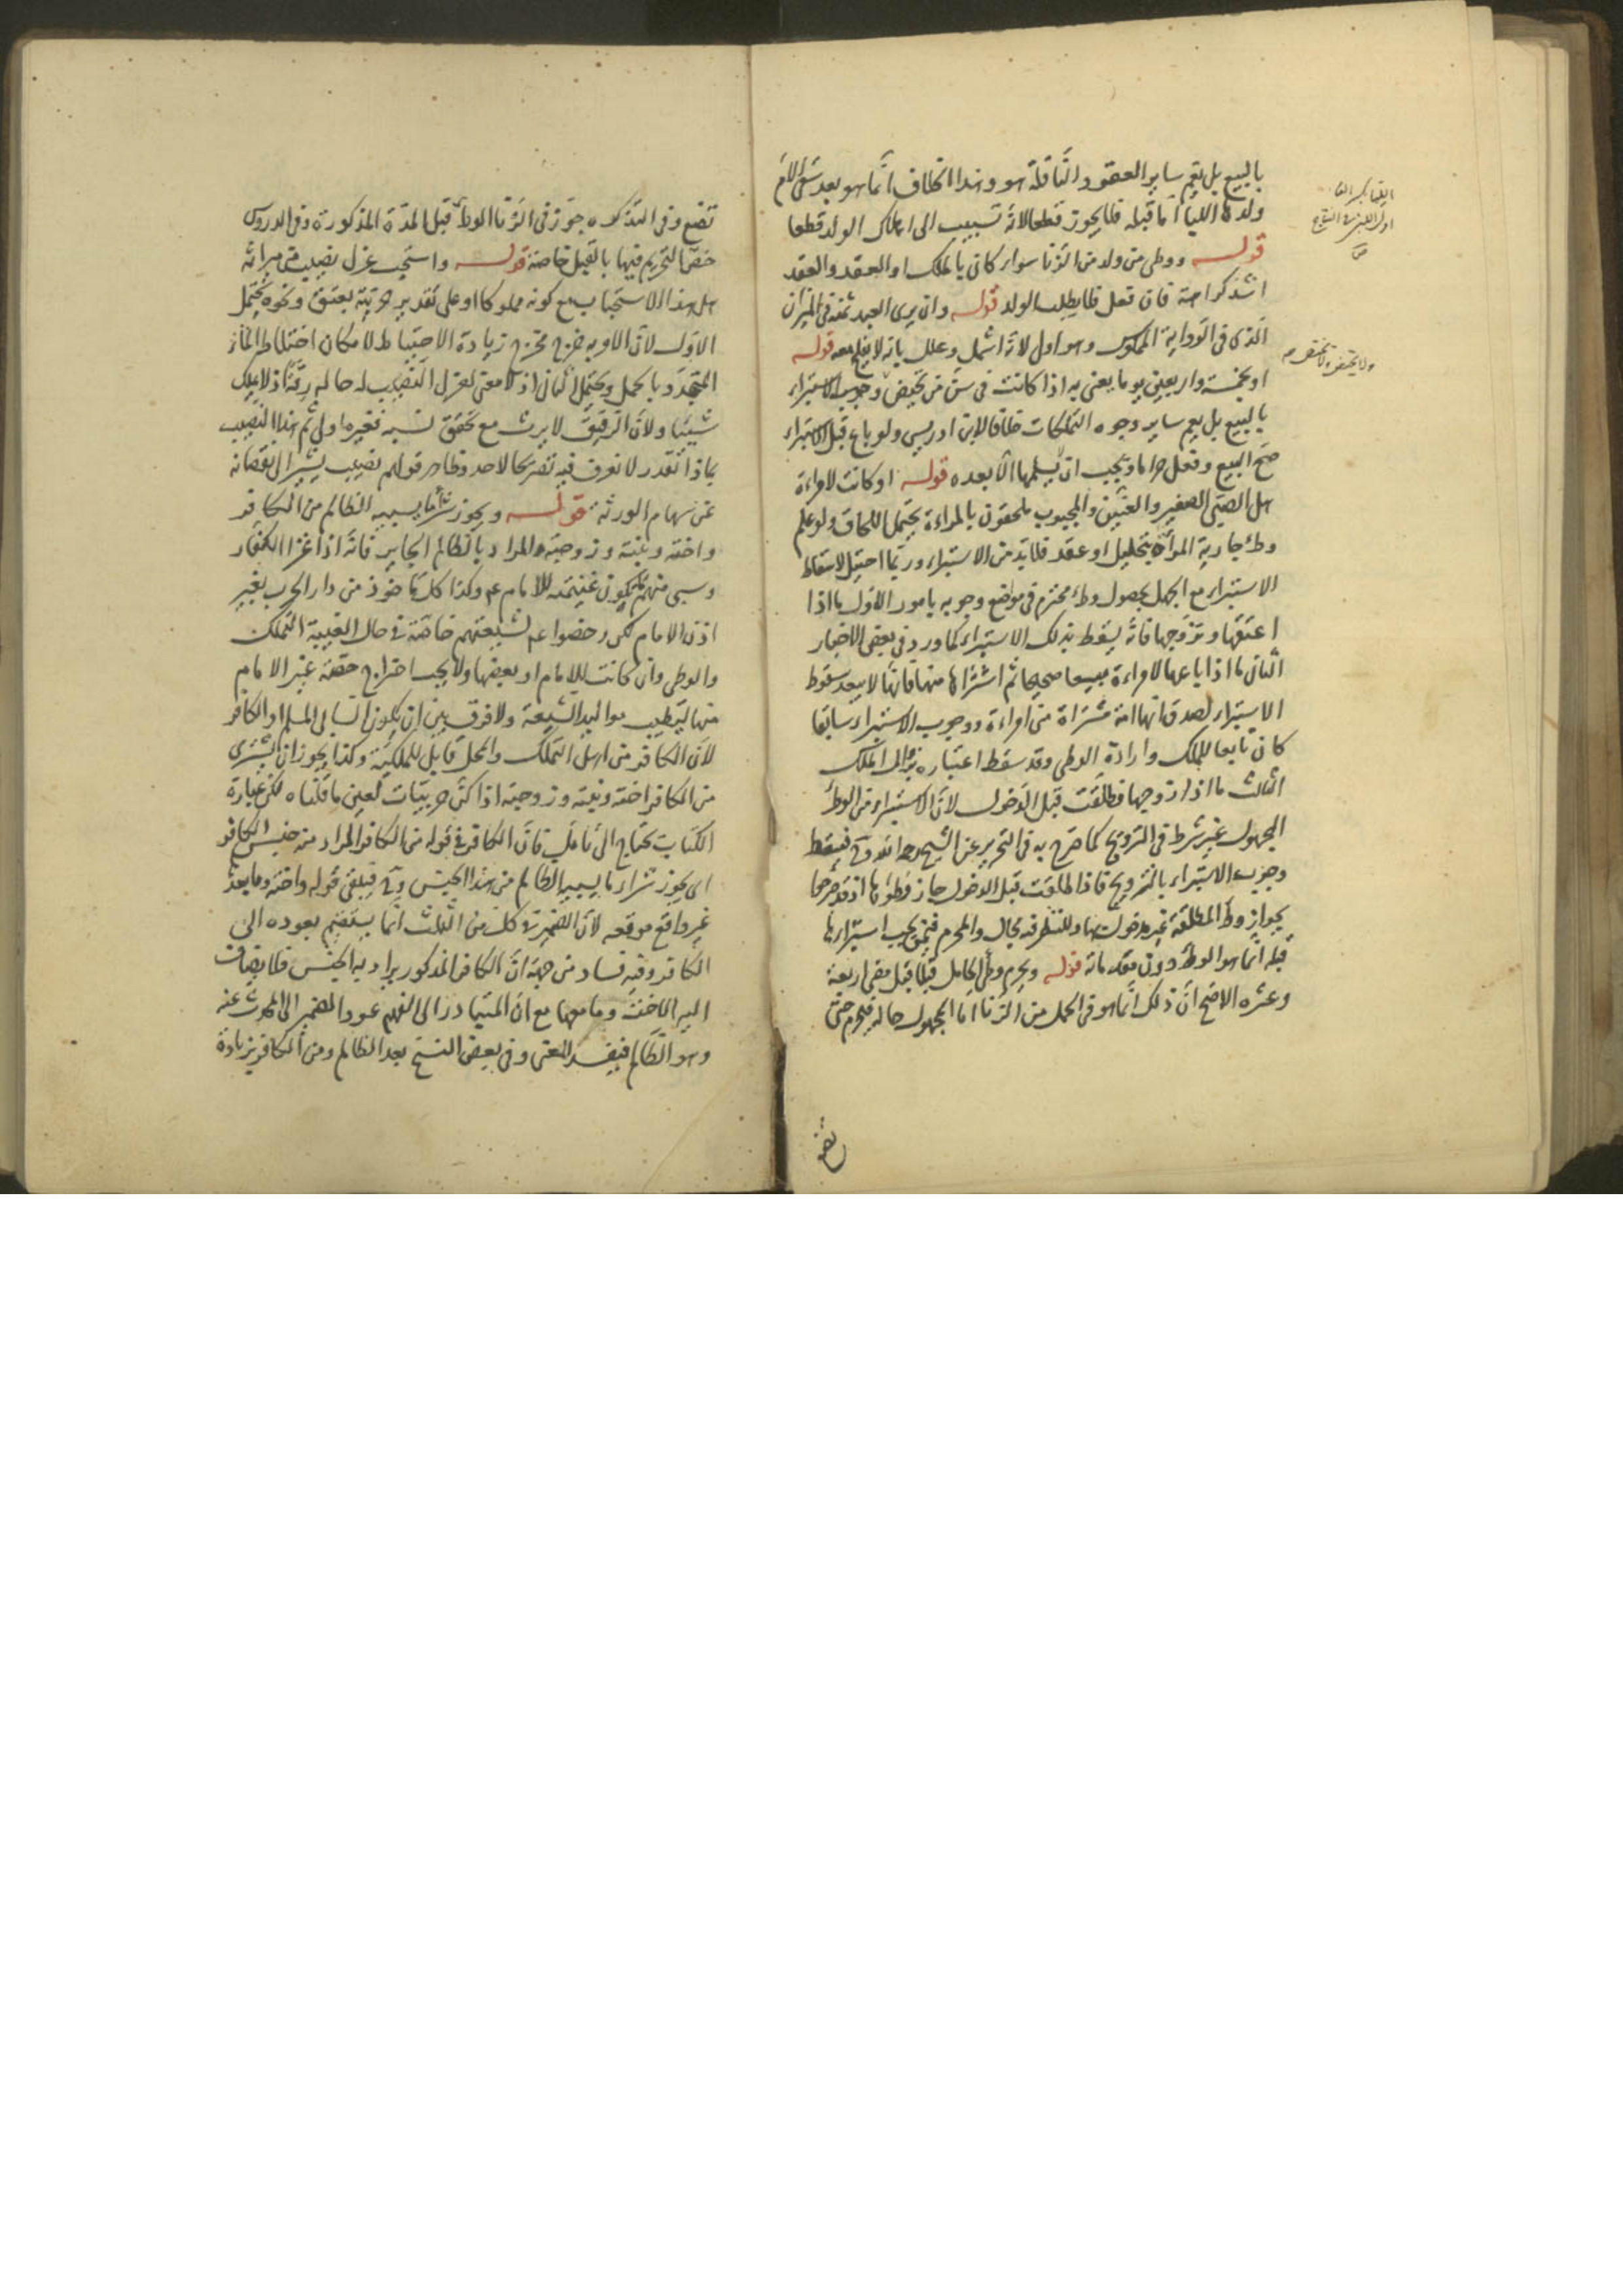 بالبيع بل يعم ساير العقود الناقلة هو وهذا الخلاف انما هو بعد سقى الام
ولدها اللبأ اما قبله فلا يجوز قطعا لانه تسبيب الى اهلاك الولد قطعا
قوله ووطى من ولد من الزنا سواء كان بالملك او بالعقد والعقد
اشد كراهة فان فعل فلا يطلب الولد قوله وان يرى العبد ثمنه فى الميزان
الذى فى الرواية المملوك وهو اولى لانه اشمل وعلل بانه لا يفلح معه قوله
او بخمسة واربعين يوما يعنى به اذا كانت فى سن من تحيض وجوب الاستبراء
بالبيع بل يعم ساير وجوه التملكات خلافا لابن ادريس ولو باع قبل الاستبراء
صح البيع وفعل حراما ويجب ان يسلمها الا بعده قوله او كانت لامراءة
هل الصبى الصغير والعنين والمجبوب ملحقون بالمراءة يحتمل اللحاق ولو علم
وطء جارية المرأة بتحليل او عقد فلابد من الاستبراء وربما احتيل لاسقاط
الاستبراء مع الجهل بحصول وطء محترم فى مواضع وجوبه بامور الاول ما اذا
اعتقها وتزوجها فانه يسقط بذلك الاستبراء كما ورد فى بعض الاخبار
الثانى ما اذا باعها لامراءة بيعا صحيحا ثم اشتراها منها فانها لا يبعد سقوط
الاستبراء لصدق انها امة مشتراة من امراءة ووجوب الاستبراء سابقا
كان تابعا للملك وارادة الوطى وقد سقط اعتباره بزوال الملك
الثالث ما اذا زوجها فطلقت قبل الدخول لان الاستبراء من الوطء
المجهول غير شرط فى التزويج كما صرح به فى التحرير عن الشيخ رحمه الله وح فيسقط
وجوب الاستبراء بالتزويج فاذا طلقت قبل الدخول جاز وطؤها اذ قد صرحوا
بجواز وطء المطلقة غير مدخول بها وللنظر فيه مجال والمحرم فيمن يجب استبراؤها
قبله انما هو الوطء دون مقدماته قوله ويحرم وطى الحامل قبلا قبل مضى اربعة
وعشرة الاصح ان ذلك انما هو فى الحمل من الزنا اما المجهول حاله فيحرم حتى
تضع
تضع وفى التذكره جوز فى الزنا الوطء قبل المدة المذكورة وفى الدروس
خص التحريم فيها بالقبل خاصة قوله واستحب عزل نصيب من ميراثه
هل هذا الاستحباب مع كونه مملوكا او على تقدير حريته بعتق ونحوه يحتمل
الاول لان الاوبه خرج مخرج زيادة الاحتياط لامكان اختلاط الماء
المتجدد بالحمل ويحتمل الثانى اذ لا معنى لعزل النصيب له حاله رقا اذ لا يملك
شيئا ولان الرقيق لا يرث مع تحقق نسبه فغيره اولى ثم هذا النصيب
بماذا تقدر لا نعرف فيه تصريحا لاحد وظاهر قولهم نصيب يشير الى نقصانه
عن سهام الورثة قوله ويجوز شراء ما يسبيه الظالم من الكافر
واخته وبنته وزوجته المراد بالظالم الجاير فانه اذا غزا الكفار
وسبى منهم تكون غنيمته للامام عم وكذا كل مأخوذ من دار الحرب بغير
اذن الامام لكن رخصوا عم لشيعتهم خاصة فى حال الغيبة التملك
والوطى وان كانت للامام او بعضها ولا يجب اخراج حصة غير الامام
منها لتطيب مواليد الشيعة ولا فرق بين ان يكون السابى المسلم او الكافر
لان الكافر من اهل التملك والمحل قابل للملكية وكذا يجوز ان يشترى
من الكافر اخته وبنته وزوجته اذا كن حربيات لعين ما قلناه لكن عبارة
الكتاب يحتاج الى تأمل فان الكافر فى قوله من الكافر المراد منه جنس الكافر
اى يجوز شراء ما يسبيه الظالم من هذا الجنس وح فيبقى قوله واخته وما بعده
غير واقع موقعه لان الضمير فى كل من الثلث انما يستقيم بعوده الى
الكافر وفيه فساد من جهة ان الكافر المذكور يراد به الجنس فلا يضاف
اليه الاخت وما معها مع ان المتبادر الى الفهم عود المضمر الى المحدث عنه
وهو الظالم فيفسد المعنى وفى بعض النسخ بعد الظالم ومن الكافر بزيادة